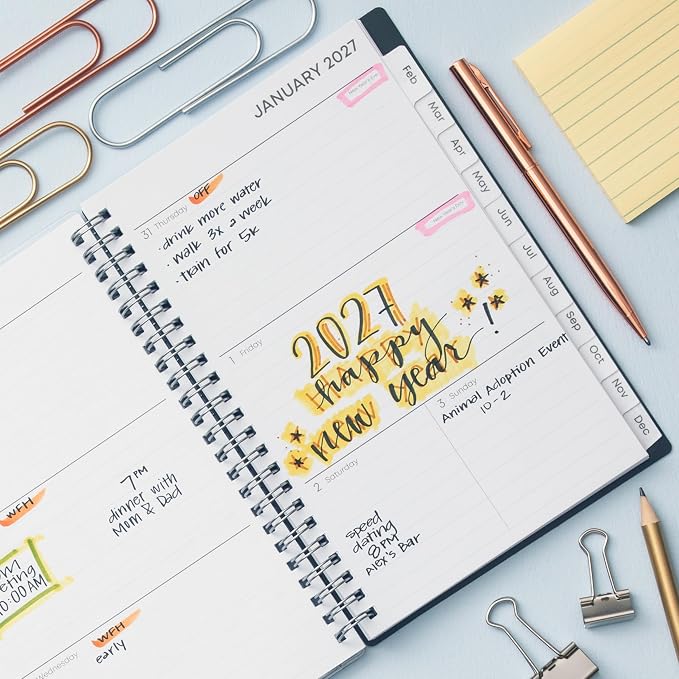 WFH
eting
0:00 AM
7PM
dinner with
Mom & Dad
Wednesday
WFH
early
JANUARY 2027
New Year's Eve
31 Thursday OFF
· drink more water
· walk 3x a week
· train for 5k
New Year's Day
1 Friday
2027
happy
new year!
2 Saturday
speed
dating
8PM
Alex's Bar
3 Sunday
Animal Adoption Event
10-2
Feb
Mar
Apr
May
Jun
Jul
Aug
Sep
Oct
Nov
Dec